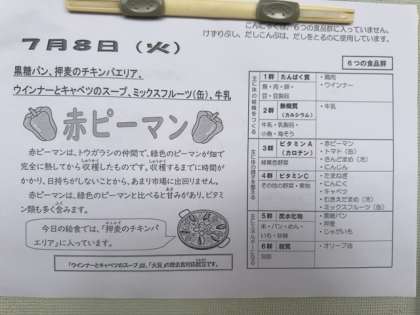 こんにゃくは、6つの食品群に入っていません。
けずりぶし、だしこんぶは、だしをとるのに使用しています。
7月8日（火）
黒糖パン、押麦のチキンパエリア、
ウインナーとキャベツのスープ、ミックスフルーツ(缶)、牛乳
赤ピーマン
赤ピーマンは、トウガラシの仲間で、緑色のピーマンが畑で
完全に熟してから収穫したものです。収穫するまでに時間が
かかり、日持ちがしないことから、あまり市場に出回りません。
赤ピーマンは、緑色のピーマンと比べると甘みがあり、ビタミ
ン類も多く含みます。
今日の給食では、「押麦のチキンパ
エリア」に入っています。
6つの食品群
1群 たんぱく質
魚・肉・卵・
豆・豆製品
・鶏肉
・ウインナー
2群 無機質
(カルシウム)
牛乳・乳製品・
小魚・海そう
・牛乳
3群 ビタミンA
(カロテン)
緑黄色野菜
・赤ピーマン
・トマト(缶)
・さんどまめ(冷)
・にんじん
4群 ビタミンC
その他の野菜・果物
・たまねぎ
・にんにく
・キャベツ
・むきえだまめ(冷)
・ミックスフルーツ(缶)
5群 炭水化物
米・パン・めん・
いも・砂糖
・黒糖パン
・押麦
・じゃがいも
6群 脂質
油脂
・オリーブ油